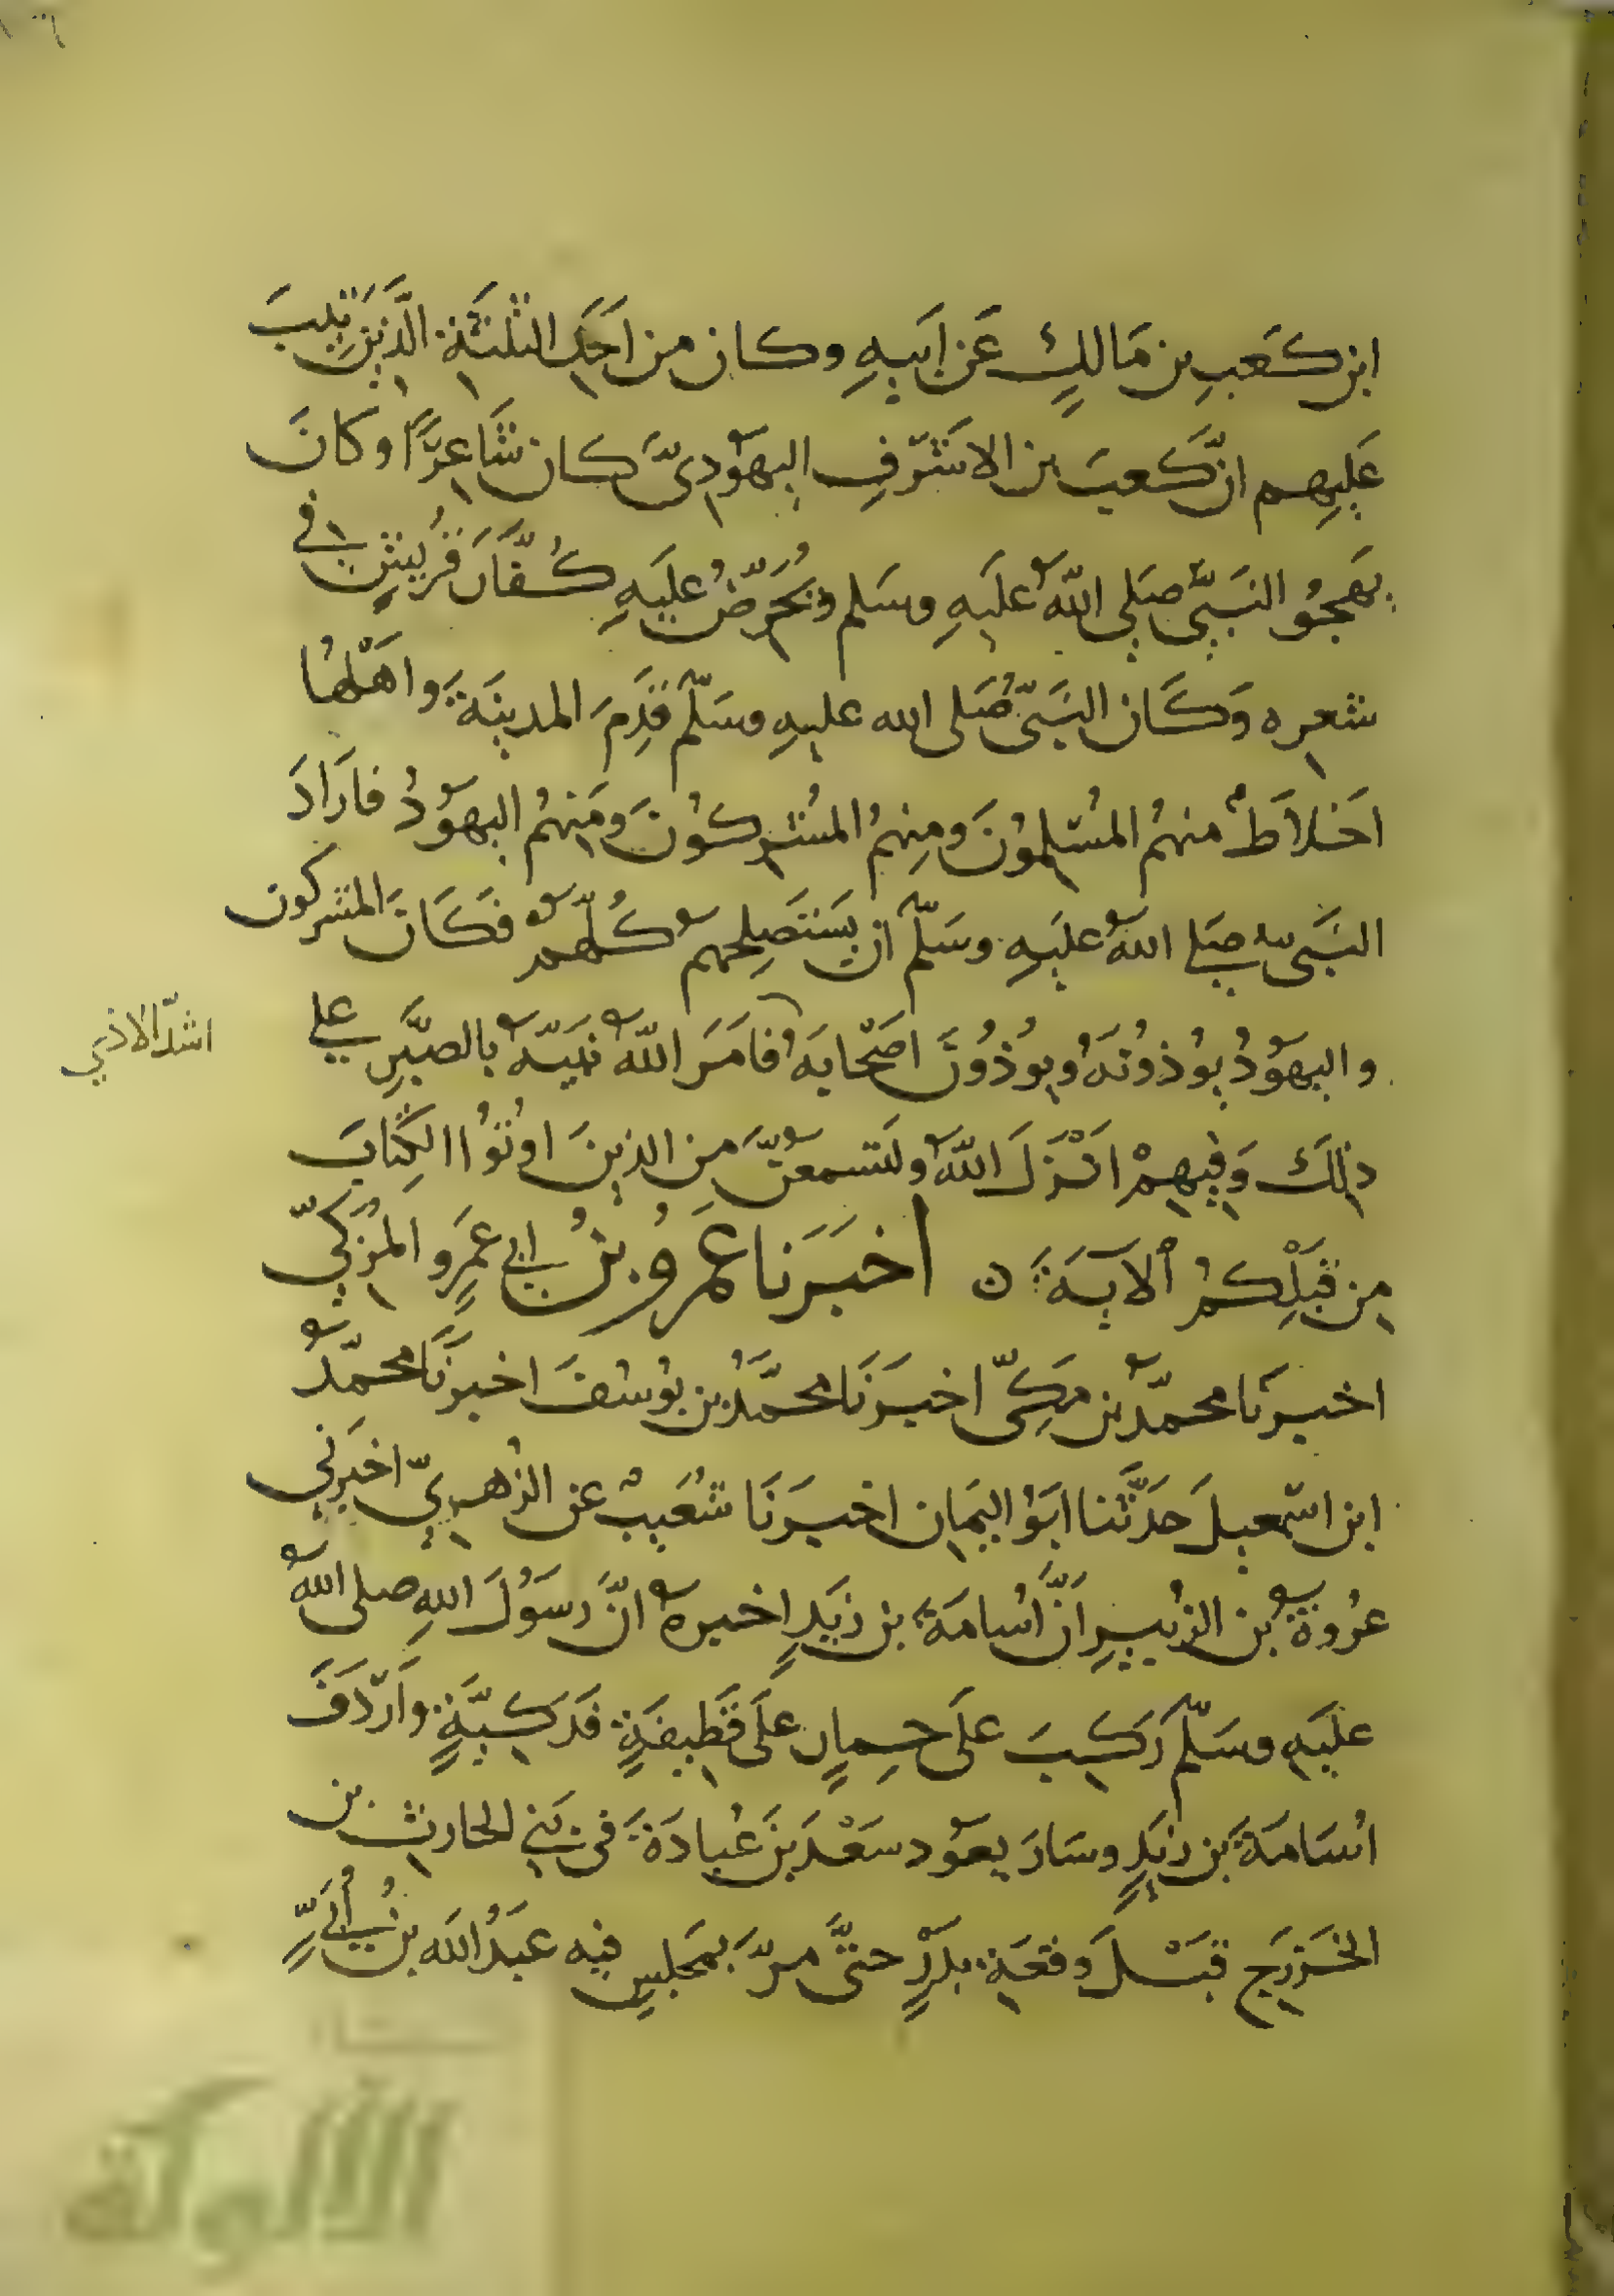 ابن كَعبِ بن مَالكٍ عَن اَبيهِ وكان من اَحَدِ الثلثَةِ الَّذينَ تِيبَ
عَليهِم انَّ كَعبَ بن الاشرَفِ اليهَودىَّ كان شَاعِرًا وكانَ
يهَجُو النَبيَّ صَلى اللّٰه عليَهِ وسَلم ويُحَرّضُ عليَهِ كُفَّارَ قُرَيشٍ في
شعره وَكَان النَبيّ صَلى الله عليهِ وسَلّم قَدِمَ المدينَةَ واهَلُهَا
اَخلاَطٌ منهمُ المسُلِمُونَ ومِنهمُ المشُركوُنَ ومَنِهمُ اليهوَدُ فاَرَادَ
النَبيّ صَلى اللهُ عليَهِ وسَلّم ان يَسَتَصلِحهم كلُّهمْ فكَانَ المشركون
واليهَودُ يوُذونَهُ ويوُذُونَ اصَحْابَهُ فامَرَ اللّٰهُ نبَيّهُ بالصبَّرِ علي
اشدّ الاذي
ذلِكَ وَفيِهِمْ انَزْلَ اللّٰهُ ولتسمعنّ مِنَ الذينَ اوُتُوُا الكِتابَ
مِن قبَلِكُمُ الآيَةَ ن اخبَرَنا عَمرَوُ بنُ ابي عَمرٍو المزُكيّ
اخبرنَا محمّدُ بن مَكِيّ اخبرَنَا محمَّدُ بن يوُسُفَ اخبرَنَا محمّدُ
ابن اسمّعيلَ حَدَّثنا ابَوُ اليمَان اخبرَنَا شعُيَبٌ عن الزُهريّ اخبَرني
عرُوةُ بن الزبُيرِ اَنَّ اسُامَةَ بن زيَدٍ اخبرهُ انَّ رسَوُلَ اللهِ صلى اللهُ
عليَهِ وسَلّم رَكبَ علَى حِمارٍ علَى قَطِيفَةٍ فدَكيَّةٍ واَردَفَ
اسُامَةَ بن زيَدٍ وسَارَ يعوَد سَعْدَ بنَ عُبادَةَ في بَني الحارثِ بن
الخَزرَجِ قبَلَ وَقعَةِ بدَرٍ حتىَّ مرّ بمَجلسٍ فيه عبَدُ الله بن اُبيٍّ